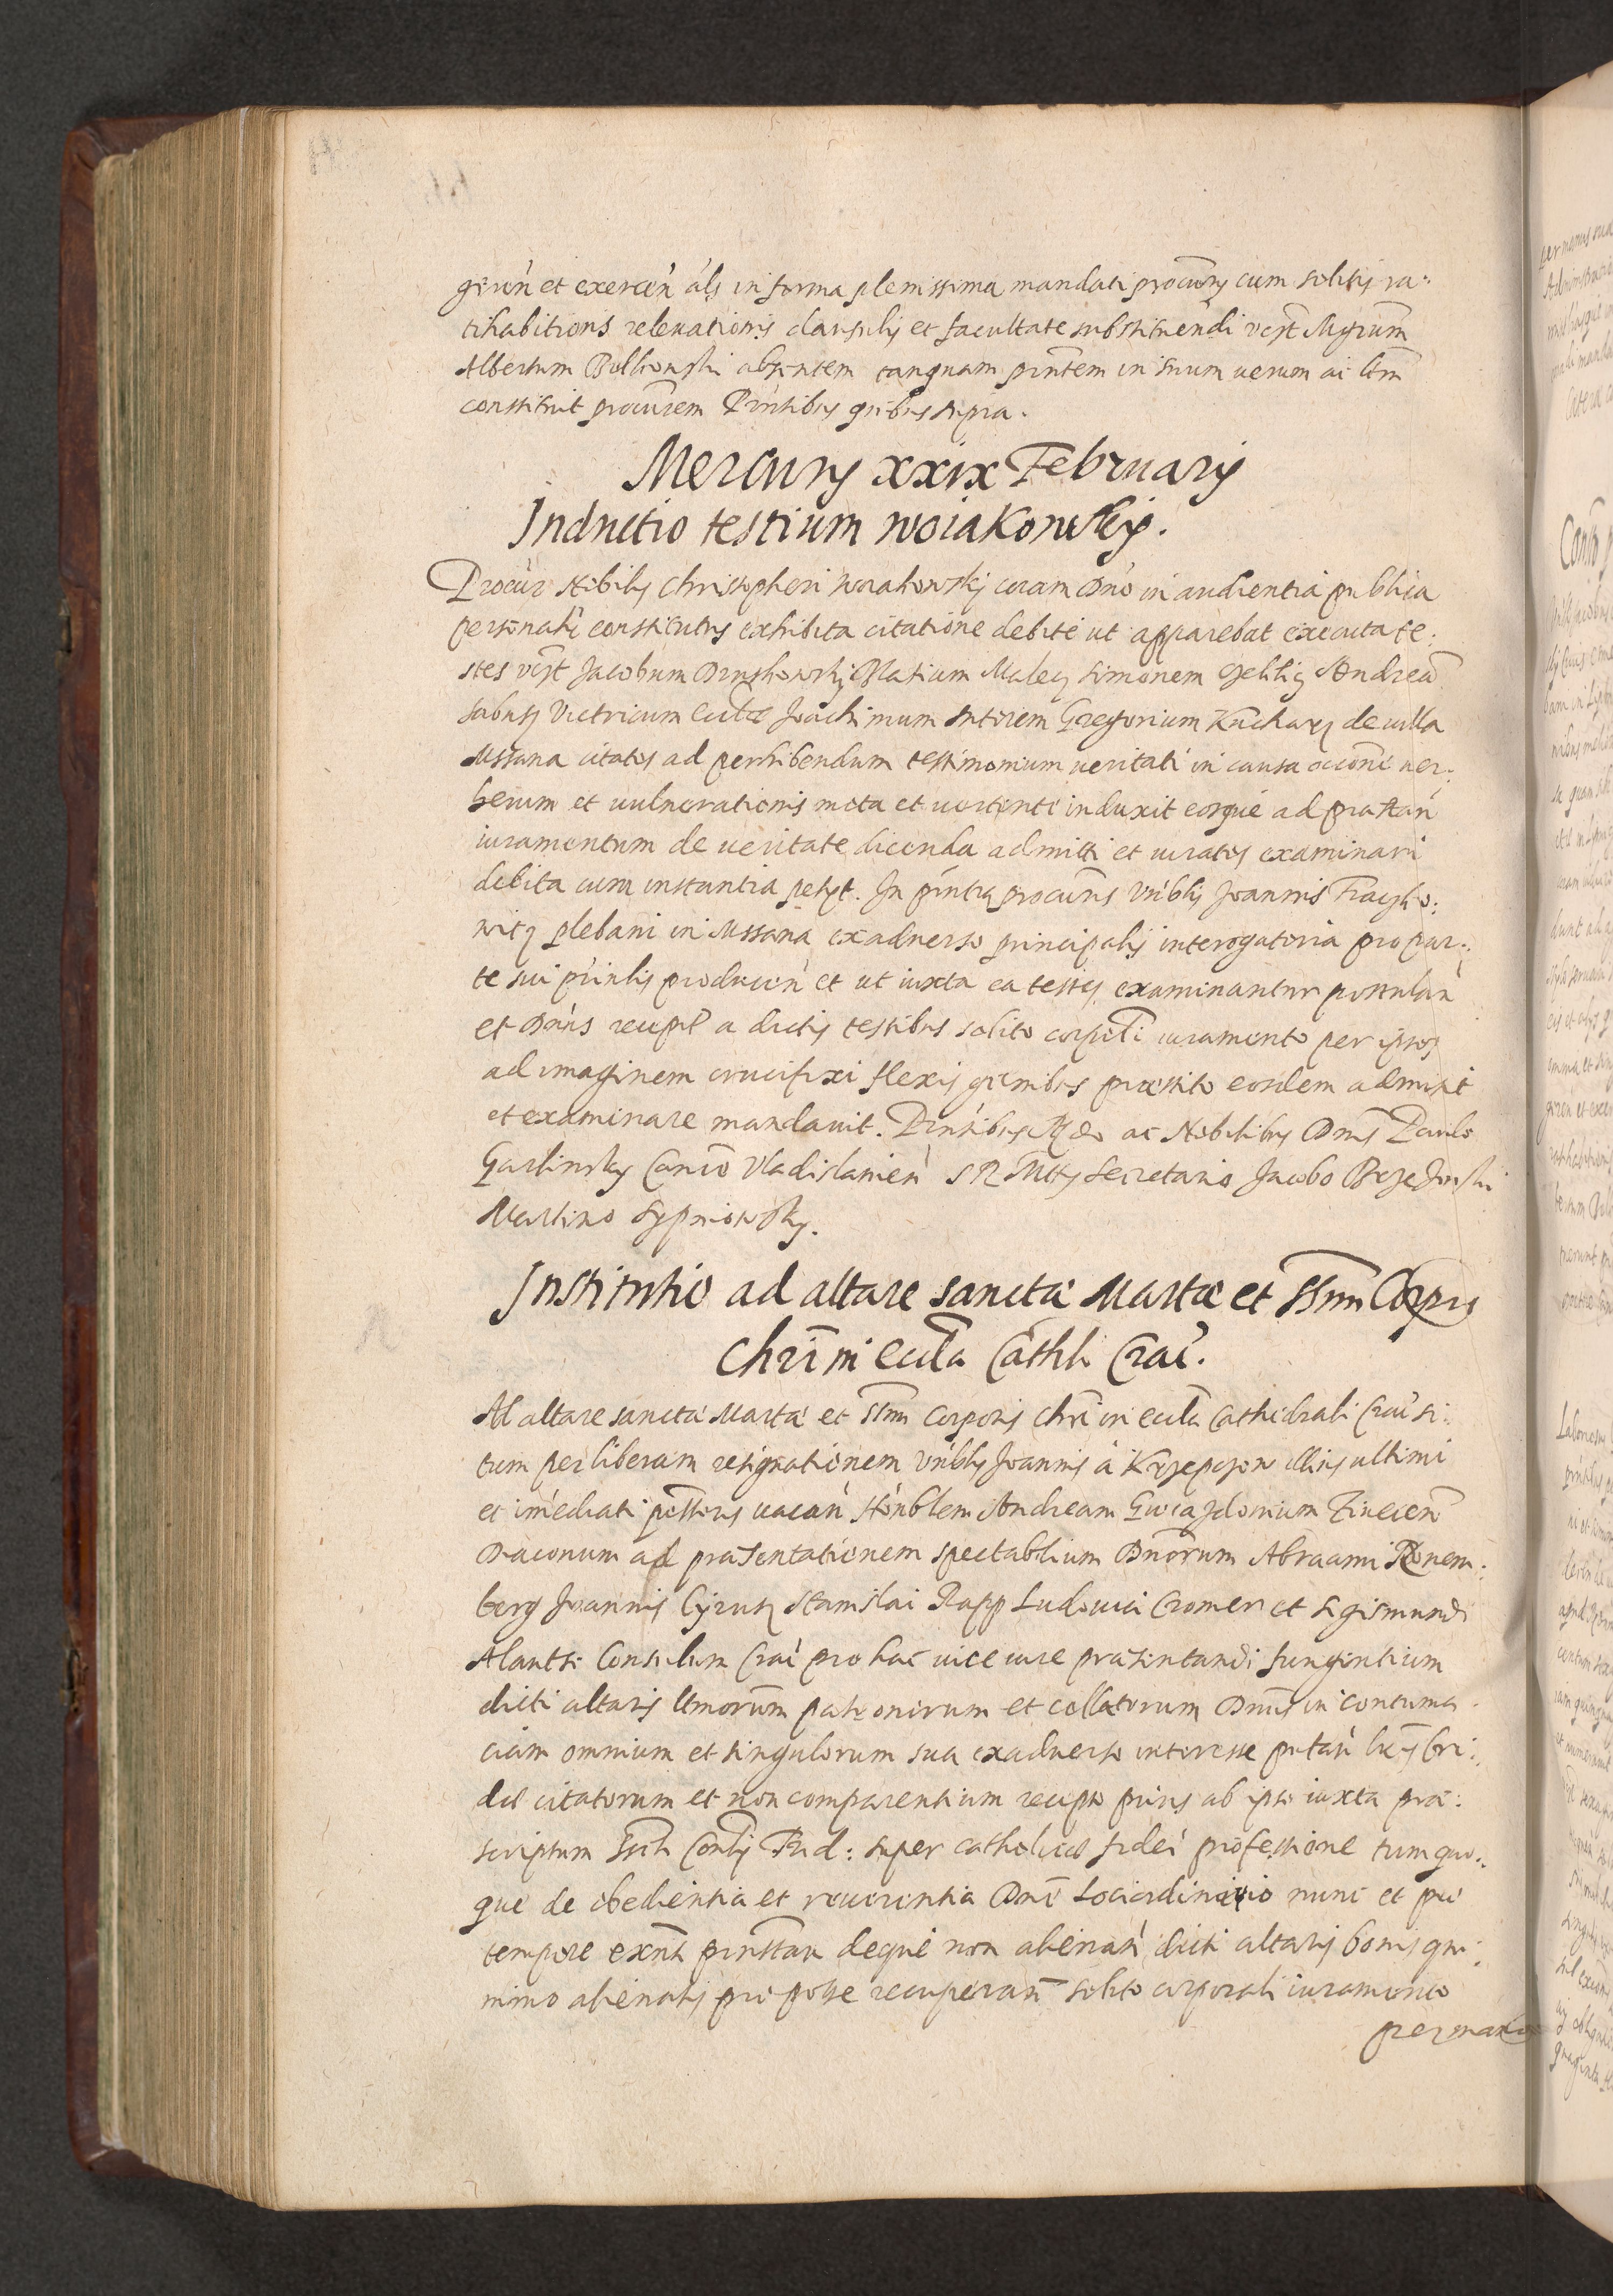 geren̄ et exercen̄ als in forma plenissima mandati procur̄nis cum solitis ra:
tihabitionis releuationis clausulis et facultate substituendi ven̄t Mgr̄um
Albertum Bolkowski absentem tanquam pn̄tem in suum uerum ac ltm̄
constituit procur̄em Pn̄tibus quibus supra.
Mercurij XXIX Februarij
Inductio testium Woiakowskij.
Procur̄ Nobilis Christopheri Woiakowskij coram Dn̄o in audientia publica
personalr̄ constitutus exhibita citatione debite ut apparebat executa te:
stes ven̄t Jacobum Blasium Malecz Simonem Andream̄
Sabasz Vitricum eccl̄æ Joachimum Sutorem Gregorium Kucharz de uilla
Mssana citatos ad perhibendum testimonium ueritati in causa occ̄one uer:
berum et uulnerationis mota et uertente induxit eosque ad præstan̄
iuramentum de ueritate dicenda admitti et iuratos examinari
debita cum instantia petijt. In pn̄tia procur̄is Vn̄blis Joannis
plebani in Mssana exaduerso principalis interogatoria pro par:
te sui prin̄lis producen̄ et ut iuxta ea testes examinantur postulan̄
et Dn̄us recepit a dictis testibus solito corp̄li iuramento per ipsos
ad imaginem crucifixi flexis genibus præstito eosdem admisit
et examinare mandauit. Pn̄tibus Rn̄do ac Nobilibus Dn̄is Paulo
Garlinsky Can̄co Vladislauien̄ S R Mtis Secretario Jacobo
Martino Sypniowsky.
Institutio ad altare sanctæ Martæ et SSmi Corpris
Chrī in eccl̄a Cathli Crac̄.
Ad altare sanctæ Martæ et SSmi Corporis Chrī in eccl̄a Cathedrali Crac̄ si:
tum per liberam resignationem Vn̄blis Joannis à Krzepczow illius ultimi
et im̄ediati poss̄oris uacan̄ Hon̄blem Andream Gwiazdonium Ziuecen̄
Diaconum ad præsentationem spectabilium Dn̄orum Abraami Ronem:
berg Joannis Cyrusz Stanislai Rapp Ludouici Cromeri et Sigismundi
Alantsi Consulum Crac̄ pro hac uice iure præsentandi fungentium
dicti altaris ltmorūm patronorum et collatorum Dn̄us in contuma
ciam omnium et singulorum sua exaduerso interesse putan̄ huīs
citatorum et non comparentium recepto prius ab ipso iuxta præ:
scriptum Ssti Conlij Trid: super catholicæ fidei professione tumquo:
que de obedientia et reuerentia Dn̄o Lociordinario nunc et pro
tempore exn̄ti præstan̄ deque non alienan̄ dicti altaris bonis qui:
nimo alienatis pro posse recuperan̄ solito corporali iuramento
per manus